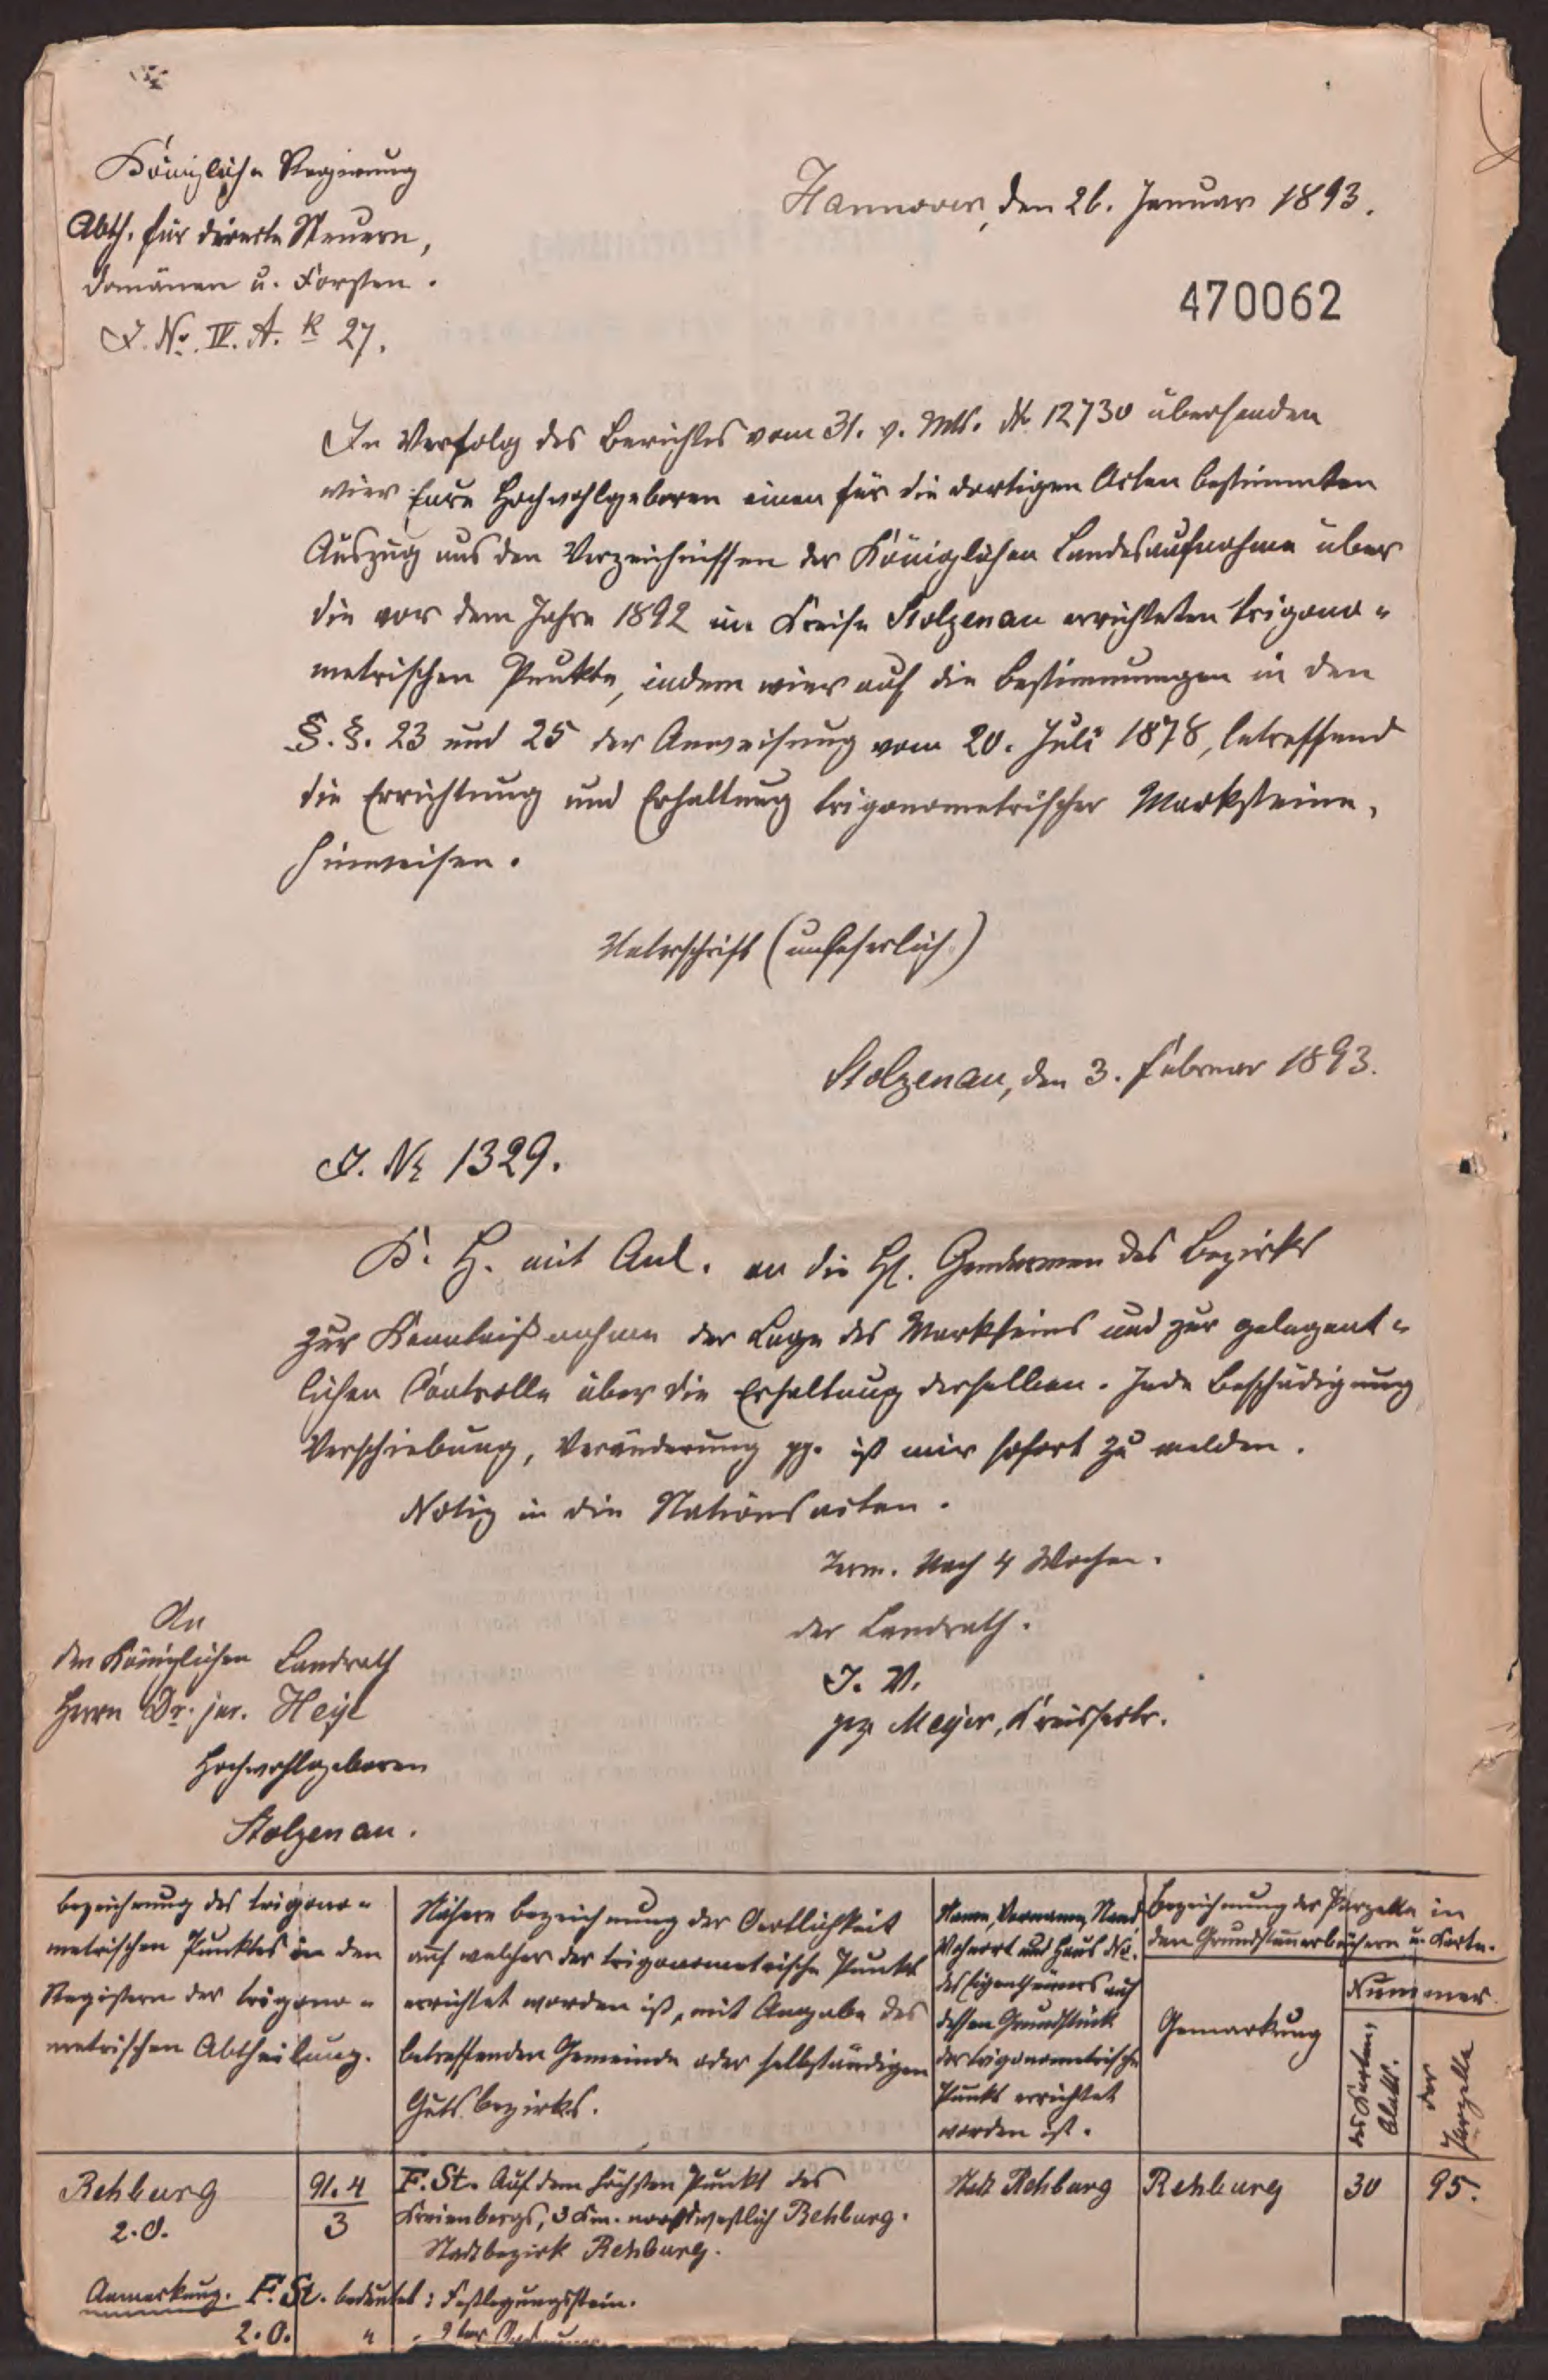 Königliche Regierung
Abth. für directe Steuern,
Domänen u. Forsten.
J. No. IV. A. K 27.
Hannover, den 26. Januar 1893.
470062
In Verfolg des Berichtes vom 31. v. Mts. No 12730 übersenden
wir Eure Hochwohlgeboren einen für die dortigen Acten bestimmten
Auszug aus den Verzeichnissen der Königlichen Landesaufnahme über
die vor dem Jahre 1892 im Kreise Stolzenau errichteten trigono-
metrischen Punkte, indem wir auf die Bestimmungen in den
§.§. 23 und 25 der Anweisung vom 20. Juli 1878, betreffend
die Errichtung und Erhaltung trigonometrischer Marksteine,
hinweisen.
Unterschrift (unleserlich)
Stolzenau, den 3. Februar 1893.
J. No 1329.
K. H. mit Anl. an die HH. Gendarmen des Bezirks
zur Kenntnißnahme der Lage des Marksteins und zur gelegent-
lichen Controlle über die Erhaltung desselben. Jede Beschädigung
Verschiebung, Veränderung pp. ist mir sofort zu melden.
Notiz in die Stationsacten.
Term. Nach 4 Wochen.
der Landrath.
J. V.
gez. Meyer, Kreissecr.
An
den Königlichen Landrath
Herrn Dr. jur. Heye
Hochwohlgeboren
Stolzenau.
Bezeichnung des trigono-
metrischen Punktes in den
Registern der trigono-
metrischen Abtheilung.
Nähere Bezeichnung der Oertlichkeit
auf welcher der trigonometrische Punkt
errichtet worden ist, mit Angabe des
betreffenden Gemeinde oder selbständigen
Gutsbezirks.
Name, Vorname, Stand
Wohnort und Haus No.
des Eigenthümers auf
dessen Grundstück
der trigonometrische
Punkt errichtet
worden ist.
Bezeichnung der Parzelle in
den Grundsteuerbüchern u. Karte.
Gemarkung
Nummer
des Karten-
blatts.
der
Parzelle
Rehburg
2.O.
91.4
3
F. St. Auf dem höchsten Punkt des
3 Km. nordwestlich Rehburg.
Stadtbezirk Rehburg.
Stadt Rehburg
Rehburg
30
95.
Anmerkung. F. St. bedeutet: Festlegungsstein.
2.O. " 2ter Ordnung